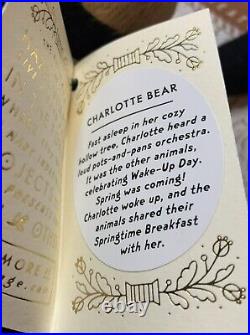 CHARLOTTE BEAR
Fast asleep in her cozy
hollow tree, Charlotte heard a
loud pots-and-pans orchestra.
It was the other animals,
celebrating Wake-Up Day.
Spring was coming!
Charlotte woke up, and the
animals shared their
Springtime Breakfast
with her.